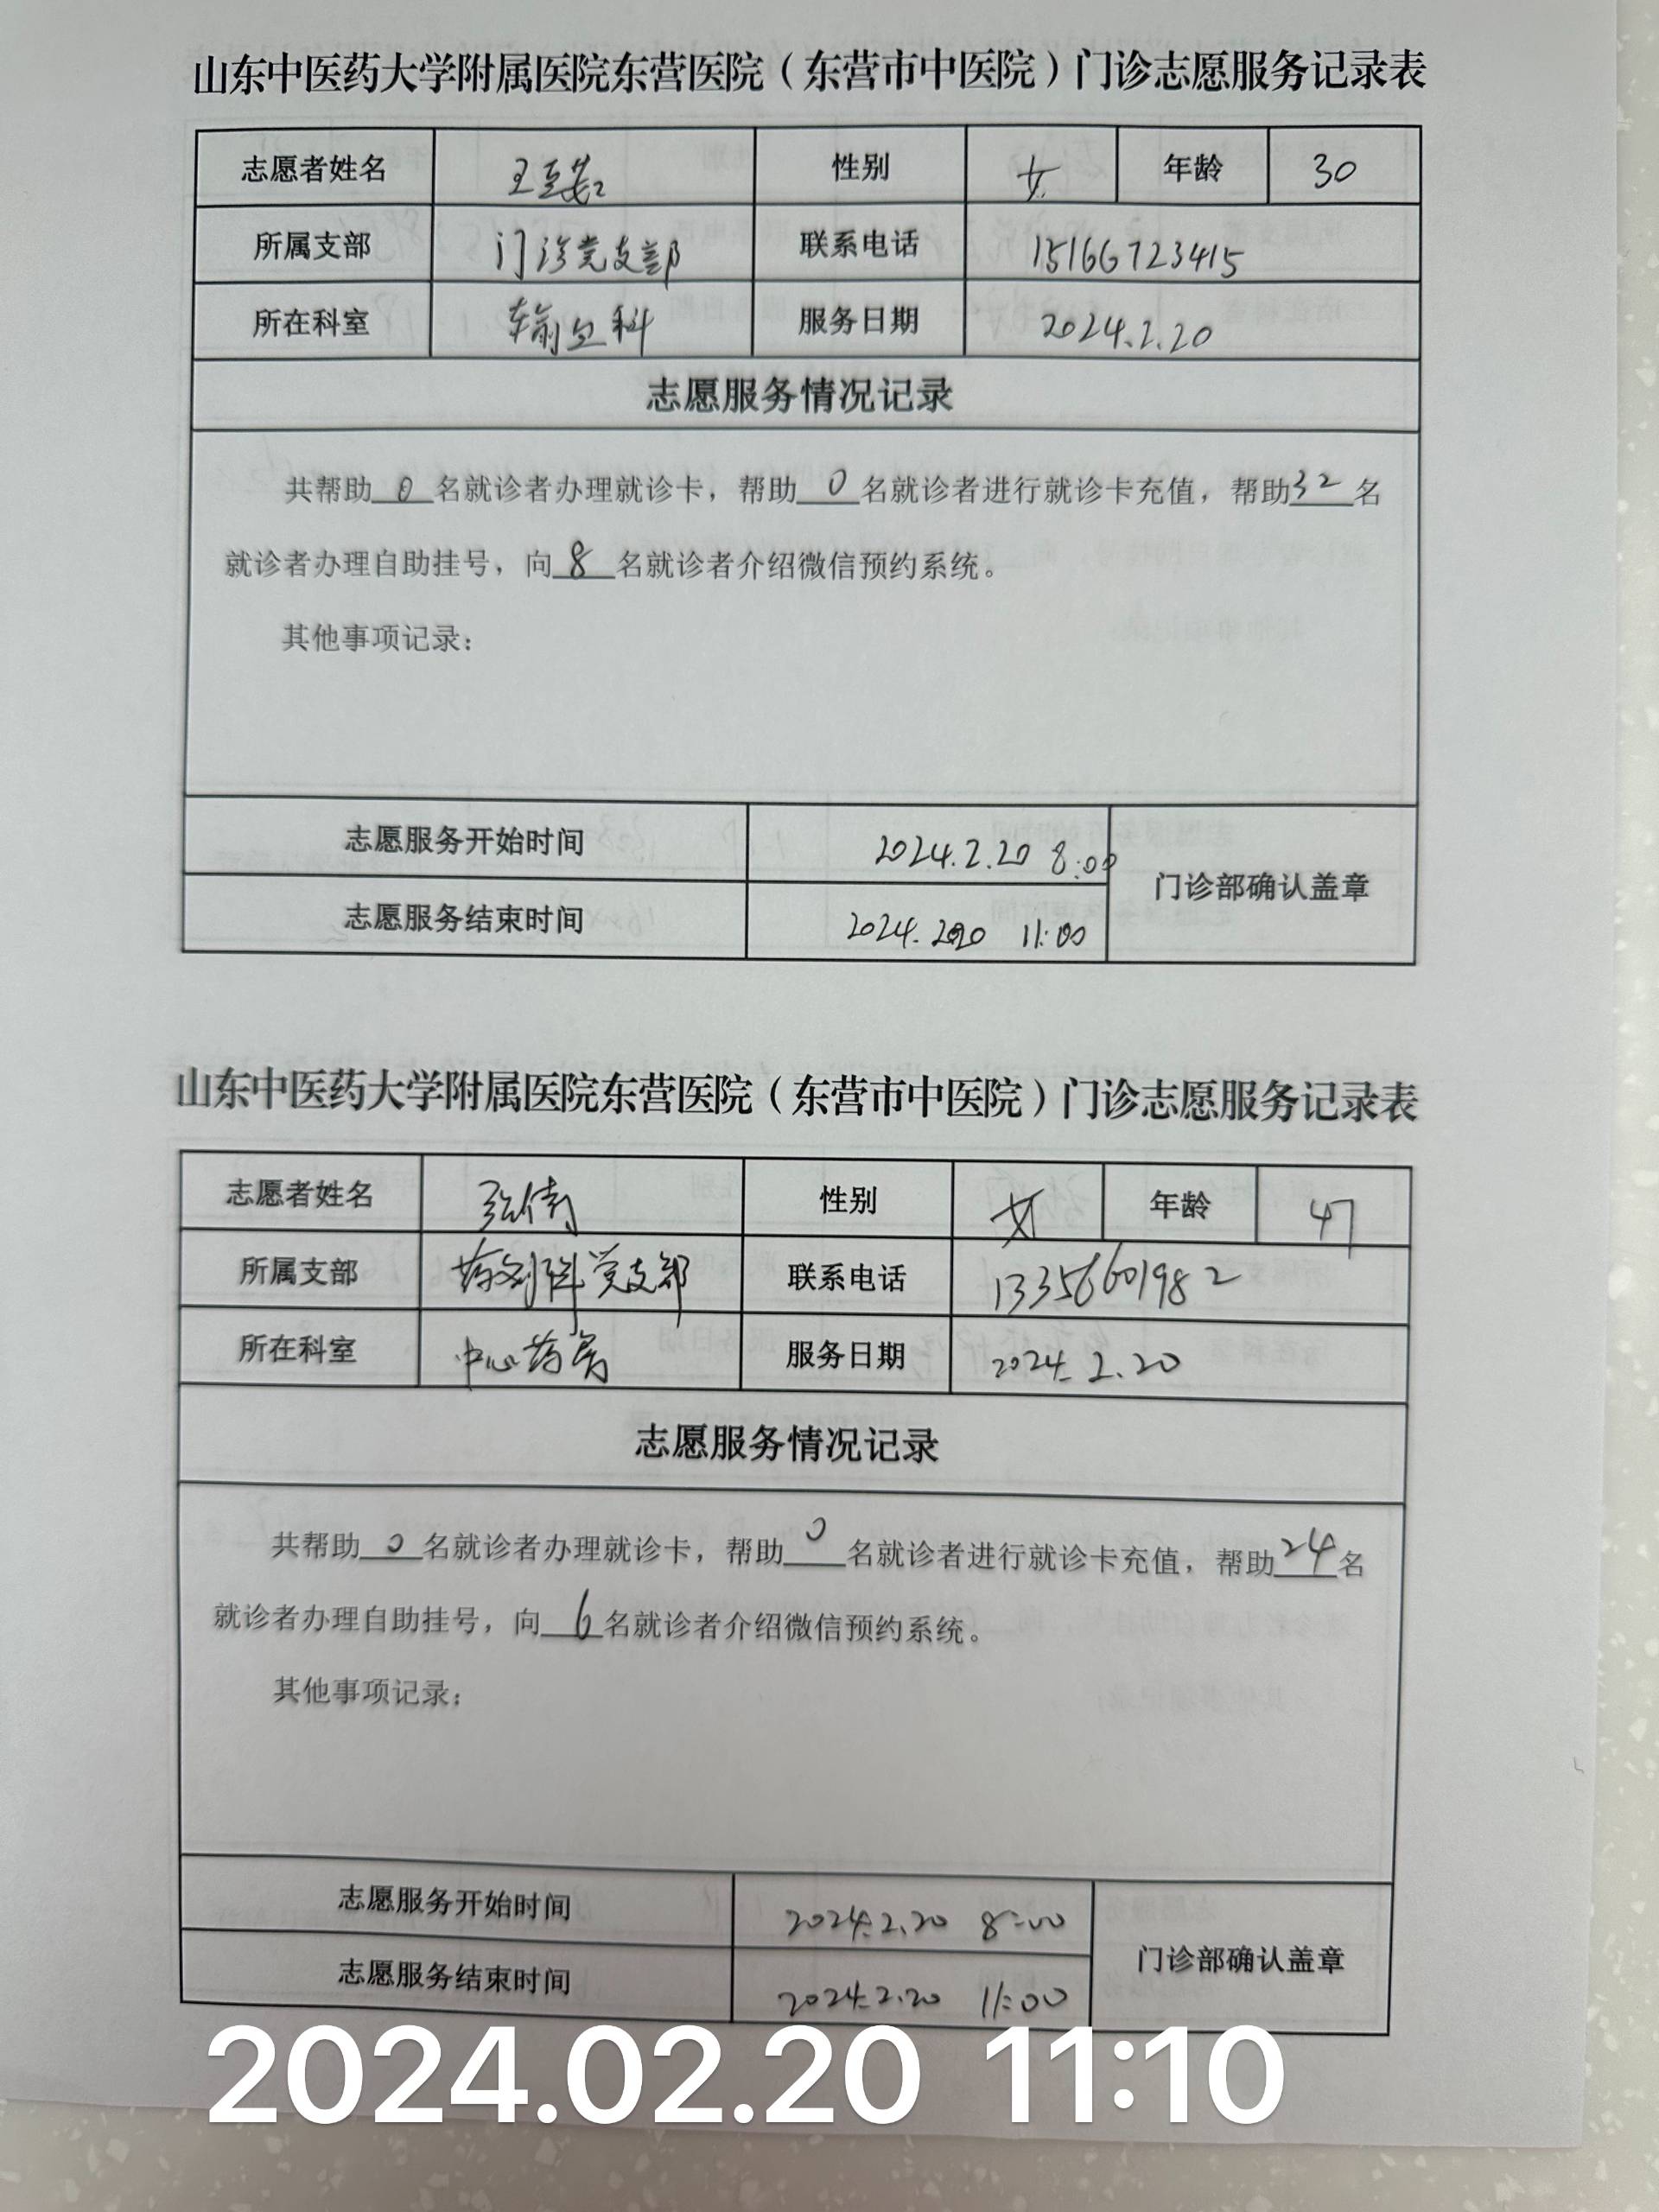 山东中医药大学附属医院东营医院（东营市中医院）门诊志愿服务记录表
志愿者姓名 王 性别 女 年龄 30
所属支部 门诊党支部 联系电话 15166723415
所在科室 输血科 服务日期 2024.2.20
志愿服务情况记录
共帮助 0 名就诊者办理就诊卡，帮助 0 名就诊者进行就诊卡充值，帮助 32 名
就诊者办理自助挂号，向 8 名就诊者介绍微信预约系统。
其他事项记录：
志愿服务开始时间 2024.2.20 8:00
门诊部确认盖章
志愿服务结束时间 2024.2.20 11:00
山东中医药大学附属医院东营医院（东营市中医院）门诊志愿服务记录表
志愿者姓名 张倩 性别 女 年龄 47
所属支部 药剂科党支部 联系电话 13356601982
所在科室 中心药房 服务日期 2024.2.20
志愿服务情况记录
共帮助 0 名就诊者办理就诊卡，帮助 0 名就诊者进行就诊卡充值，帮助 24 名
就诊者办理自助挂号，向 6 名就诊者介绍微信预约系统。
其他事项记录：
志愿服务开始时间 2024.2.20 8:00
门诊部确认盖章
志愿服务结束时间 2024.2.20 11:00
2024.02.20 11:10